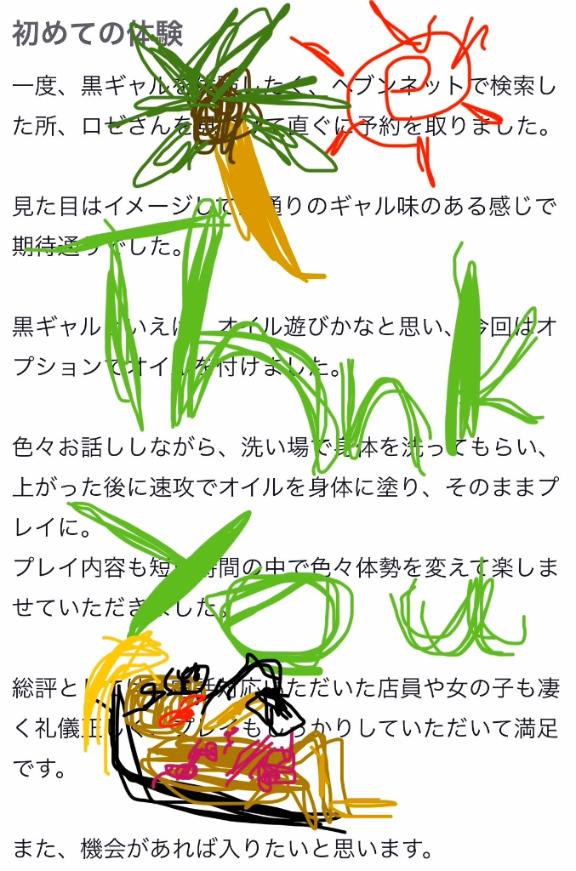 初めての体験
一度、黒ギャルを したく、ヘブンネットで検索し
た所、ロゼさんを て直ぐに予約を取りました。
見た目はイメージしていた通りのギャル味のある感じで
期待通りでした。
黒ギャルといえば、オイル遊びかなと思い、今回はオ
プションでオイルを付けました。
Thnk
色々お話ししながら、洗い場で身体を洗ってもらい、
上がった後に速攻でオイルを身体に塗り、そのままプ
レイに。
プレイ内容も短い時間の中で色々体勢を変えて楽しま
せていただきました。
You
総評と 対応いただいた店員や女の子も凄
く礼儀正しく、プレイもしっかりしていただいて満足
です。
また、機会があれば入りたいと思います。